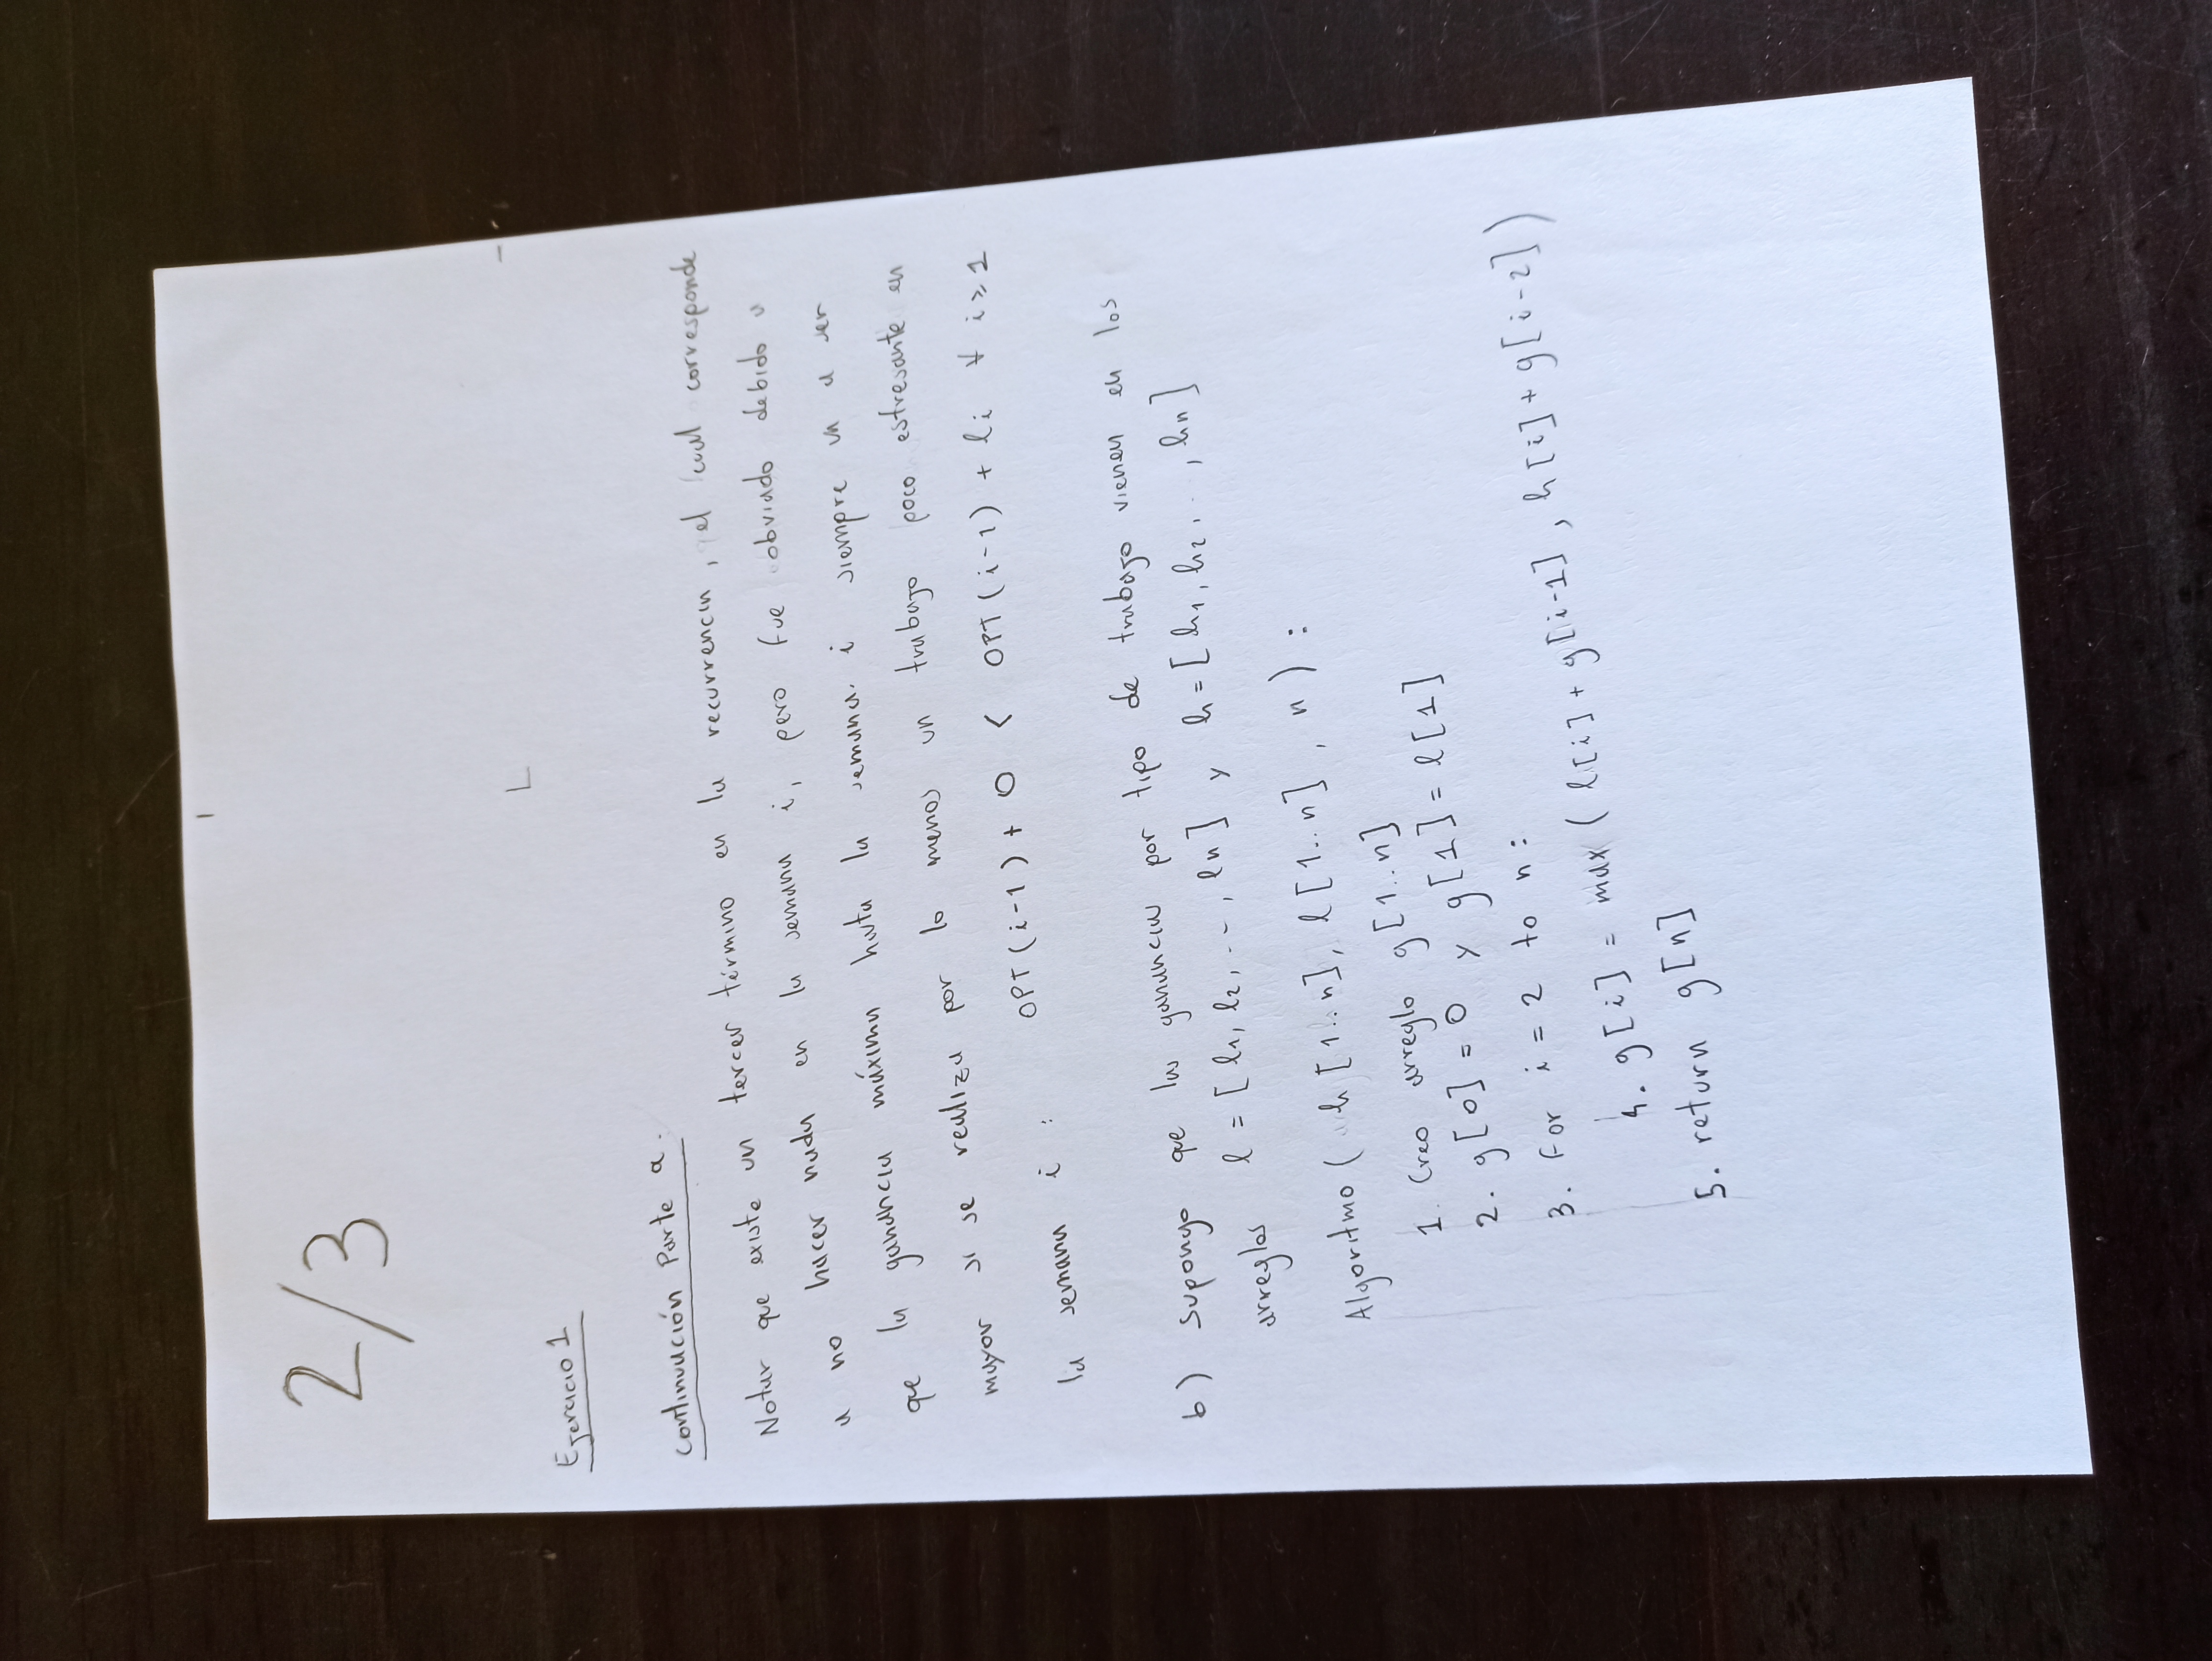 2/3
L
Ejercicio 1
Continuación Parte a.
Notar que existe un tercer término en la recurrencia, el cual corresponde
a no hacer nada en la semana i, pero fue obviado debido a
que la ganancia máxima hasta la semana i siempre va a ser
mayor si se realiza por lo menos un trabajo poco estresante en
la semana i : OPT(i-1) + 0 < OPT(i-1) + li ∀ i ≥ 1
b) Supongo que las ganancias por tipo de trabajo vienen en los
arreglos l = [l1, l2, ..., ln] y h = [h1, h2, ..., hn]
Algoritmo ( h[1..n], l[1..n], n ) :
1. Creo arreglo g[1..n]
2. g[0] = 0 y g[1] = l[1]
3. For i = 2 to n :
4. g[i] = max ( l[i] + g[i-1], h[i] + g[i-2] )
5. return g[n]